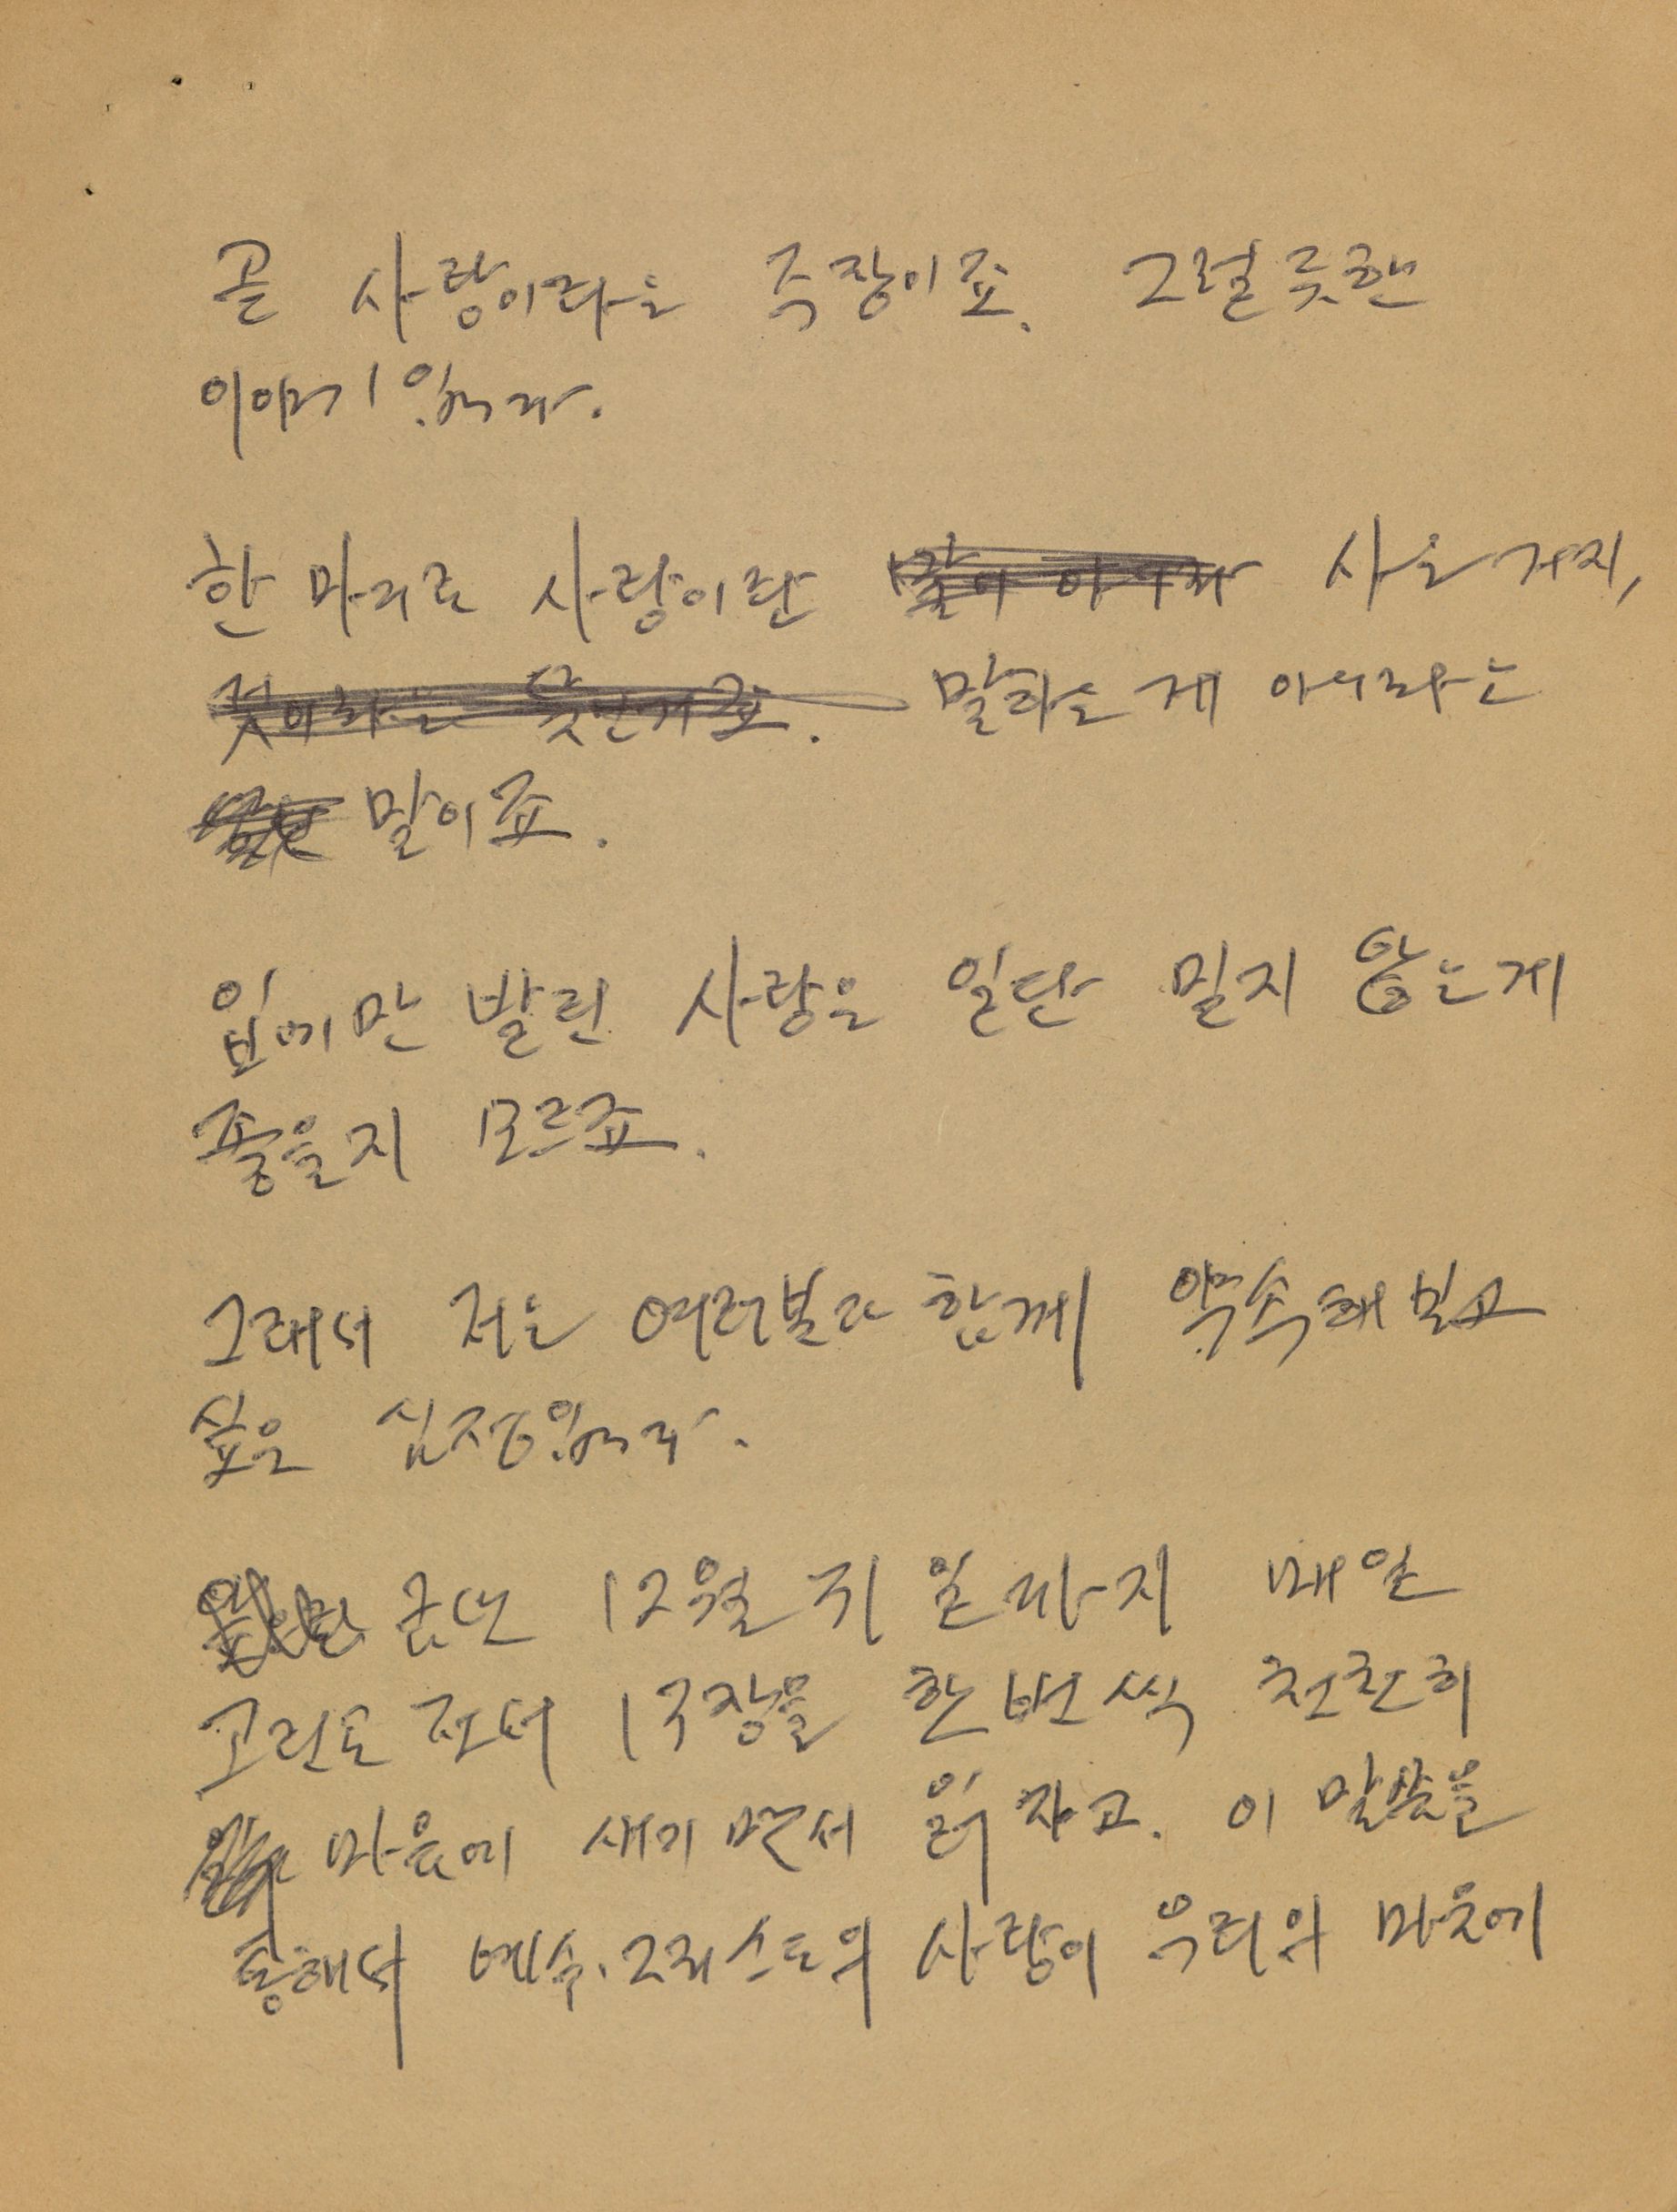 곧 사랑이라는 주장이죠. 그럴듯한
이야기입니다.
한 마디로 사랑이란 사는 거지,
말하는 게 아니라는
말이죠.
입에만 발린 사랑은 일단 믿지 않는게
좋을지 모르죠.
그래서 저는 여러분과 함께 약속해 보고
싶은 심정입니다.
금년 12월 31일까지 매일
고린도 전서 13장을 한번씩 천천히
마음에 새기면서 읽자고. 이 말씀을
통해서 예수·그리스도의 사랑이 우리의 마음에